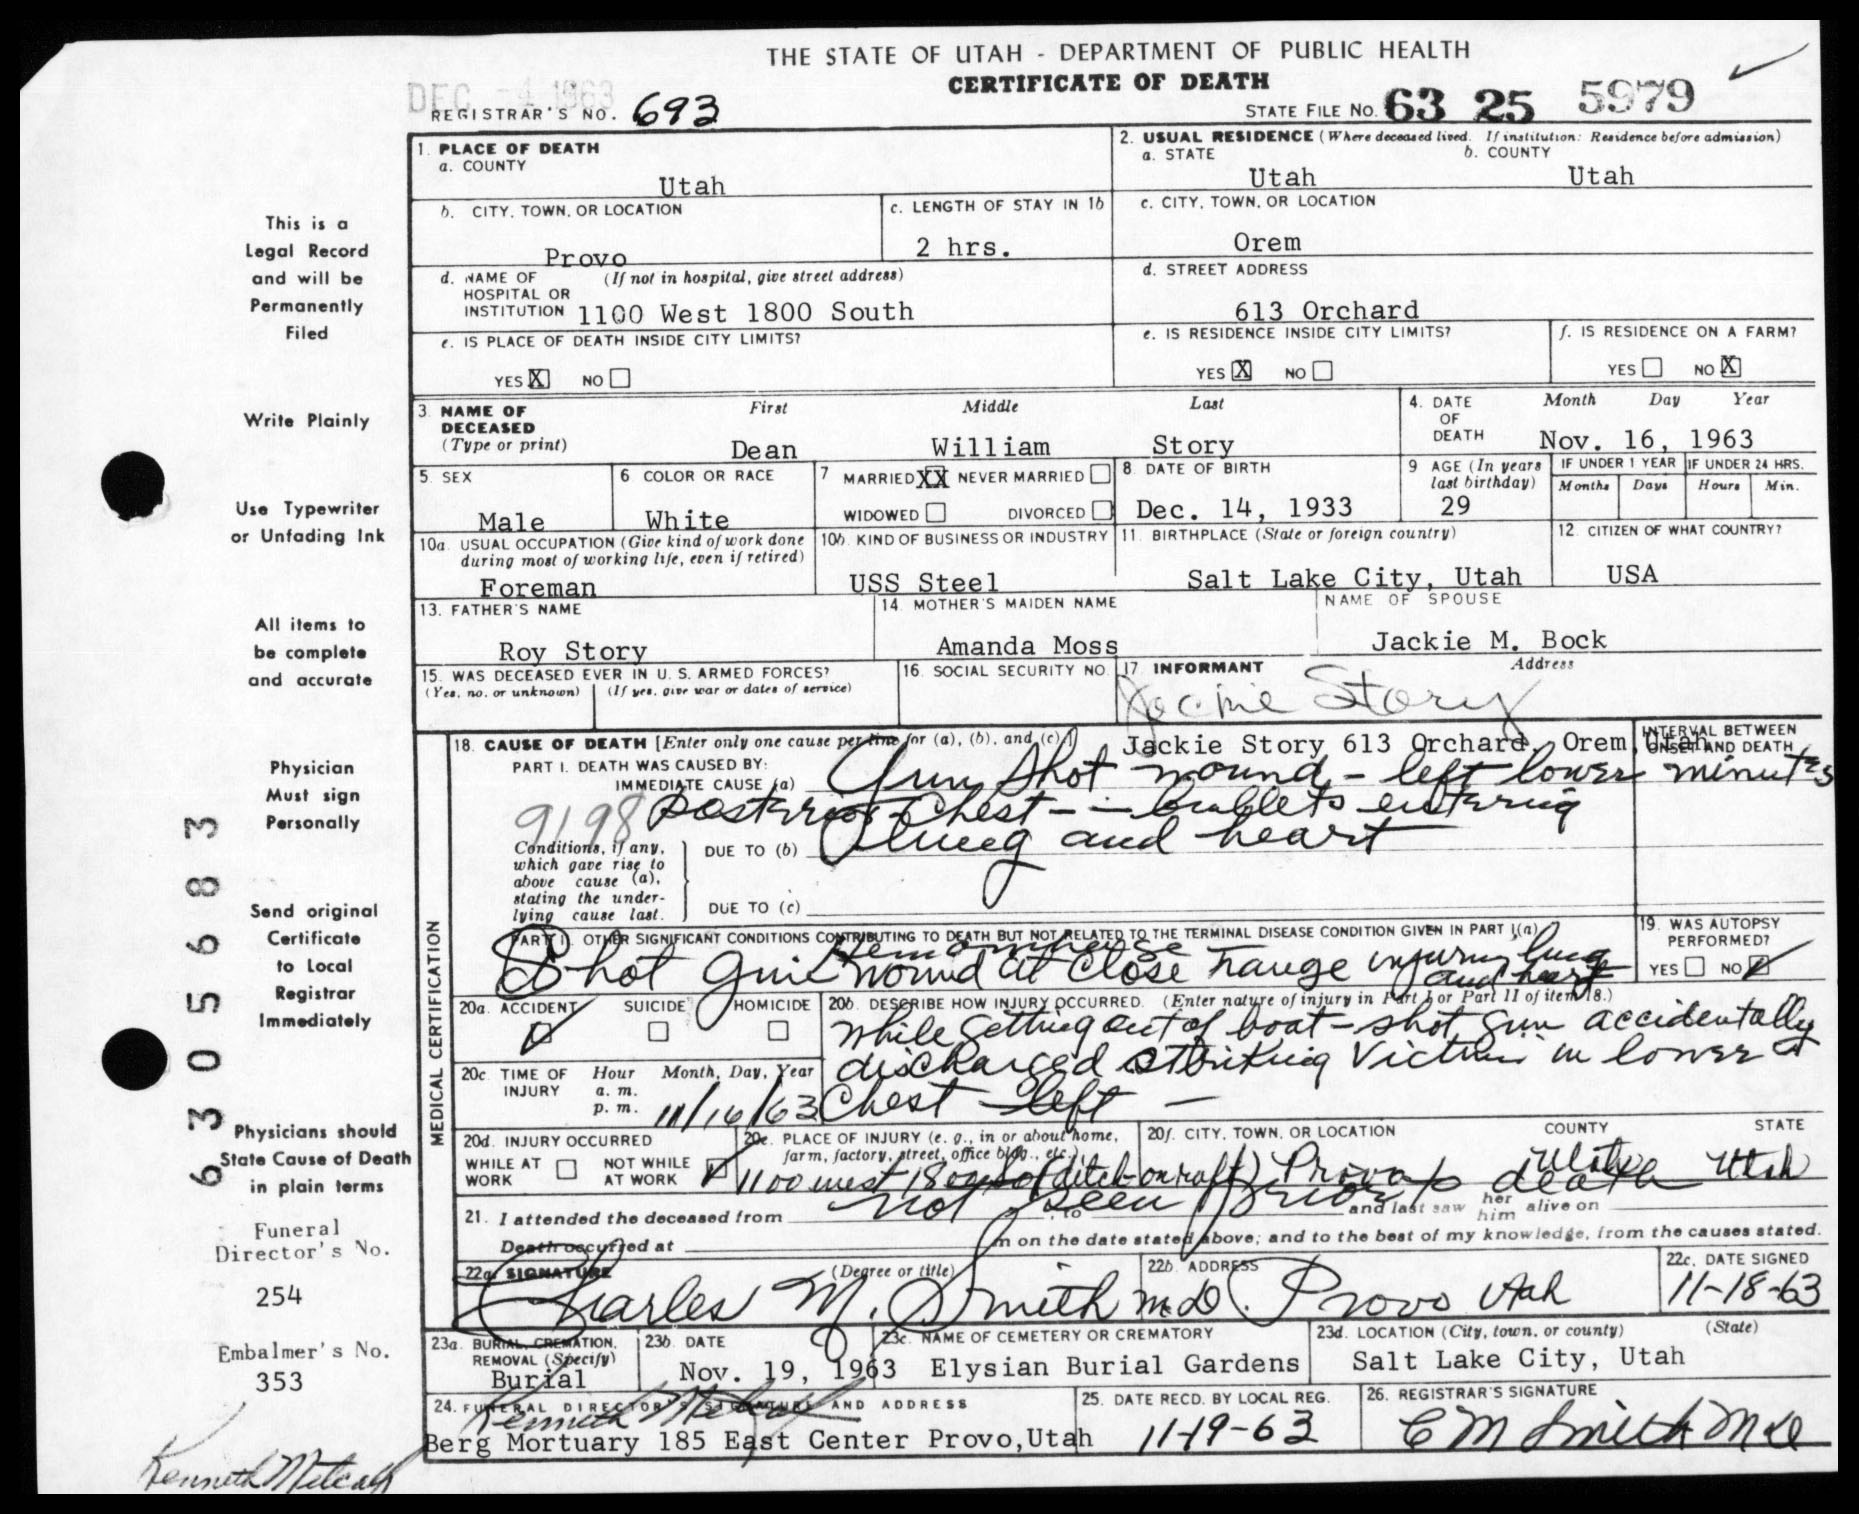 THE STATE OF UTAH - DEPARTMENT OF PUBLIC HEALTH
CERTIFICATE OF DEATH
DEC -4 1963
REGISTRAR'S NO. 693
STATE FILE NO. 63 25 5979
1. PLACE OF DEATH
a. COUNTY
Utah
2. USUAL RESIDENCE (Where deceased lived. If institution: Residence before admission)
a. STATE b. COUNTY
Utah Utah
b. CITY, TOWN, OR LOCATION
Provo
c. LENGTH OF STAY IN 1b
2 hrs.
c. CITY, TOWN, OR LOCATION
Orem
d. NAME OF (If not in hospital, give street address)
HOSPITAL OR
INSTITUTION 1100 West 1800 South
d. STREET ADDRESS
613 Orchard
e. IS PLACE OF DEATH INSIDE CITY LIMITS?
YES X NO
e. IS RESIDENCE INSIDE CITY LIMITS?
YES X NO
f. IS RESIDENCE ON A FARM?
YES NO X
3. NAME OF DECEASED
(Type or print)
First Middle Last
Dean William Story
4. DATE OF DEATH
Month Day Year
Nov. 16, 1963
5. SEX
Male
6 COLOR OR RACE
White
7 MARRIED XX NEVER MARRIED
WIDOWED DIVORCED
8. DATE OF BIRTH
Dec. 14, 1933
9 AGE (In years
last birthday)
29
IF UNDER 1 YEAR IF UNDER 24 HRS.
Months Days Hours Min.
10a. USUAL OCCUPATION (Give kind of work done
during most of working life, even if retired)
Foreman
10b. KIND OF BUSINESS OR INDUSTRY
USS Steel
11. BIRTHPLACE (State or foreign country)
Salt Lake City, Utah
12. CITIZEN OF WHAT COUNTRY?
USA
13. FATHER'S NAME
Roy Story
14. MOTHER'S MAIDEN NAME
Amanda Moss
NAME OF SPOUSE
Jackie M. Bock
15. WAS DECEASED EVER IN U. S. ARMED FORCES?
(Yes, no, or unknown) (If yes, give war or dates of service)
16. SOCIAL SECURITY NO.
17 INFORMANT Address
Jackie Story
Jackie Story 613 Orchard, Orem, Utah
MEDICAL CERTIFICATION
18. CAUSE OF DEATH [Enter only one cause per line for (a), (b), and (c).]
INTERVAL BETWEEN
ONSET AND DEATH
PART I. DEATH WAS CAUSED BY:
IMMEDIATE CAUSE (a) Gun shot wound - left lower minutes
9198 posterior Chest - bullets entering
lung and heart
Conditions, if any,
which gave rise to
above cause (a),
stating the under-
lying cause last.
DUE TO (b)
DUE TO (c)
PART II. OTHER SIGNIFICANT CONDITIONS CONTRIBUTING TO DEATH BUT NOT RELATED TO THE TERMINAL DISEASE CONDITION GIVEN IN PART I(a)
Shot gun wound at close range injuring lung
and heart
19. WAS AUTOPSY
PERFORMED?
YES NO
20a. ACCIDENT SUICIDE HOMICIDE
20b. DESCRIBE HOW INJURY OCCURRED. (Enter nature of injury in Part I or Part II of item 18.)
while getting out of boat - shot gun accidentally
discharged striking victim in lower
chest - left -
20c. TIME OF INJURY
Hour Month, Day, Year
a. m.
p. m. 11/16/63
20d. INJURY OCCURRED
WHILE AT WORK
NOT WHILE AT WORK
20e. PLACE OF INJURY (e. g., in or about home,
farm, factory, street, office bldg., etc.)
1100 west 1800 So (ditch on raft)
20f. CITY, TOWN, OR LOCATION COUNTY STATE
Provo Utah Utah
21. I attended the deceased from , to and last saw her him alive on
not seen prior to death
Death occurred at m on the date stated above; and to the best of my knowledge, from the causes stated.
22a. SIGNATURE (Degree or title)
Charles M. Smith M.D.
22b. ADDRESS
Provo Utah
22c. DATE SIGNED
11-18-63
23a. BURIAL, CREMATION,
REMOVAL (Specify)
Burial
23b. DATE
Nov. 19, 1963
23c. NAME OF CEMETERY OR CREMATORY
Elysian Burial Gardens
23d. LOCATION (City, town, or county) (State)
Salt Lake City, Utah
24. FUNERAL DIRECTOR'S SIGNATURE AND ADDRESS
Kenneth Metcalf
Berg Mortuary 185 East Center Provo, Utah
25. DATE RECD. BY LOCAL REG.
11-19-63
26. REGISTRAR'S SIGNATURE
C M Smith MD
This is a
Legal Record
and will be
Permanently
Filed
Write Plainly
Use Typewriter
or Unfading Ink
All items to
be complete
and accurate
Physician
Must sign
Personally
Send original
Certificate
to Local
Registrar
Immediately
Physicians should
State Cause of Death
in plain terms
6 3 0 5 6 8 3
Funeral
Director's No.
254
Embalmer's No.
353
Kenneth Metcalf